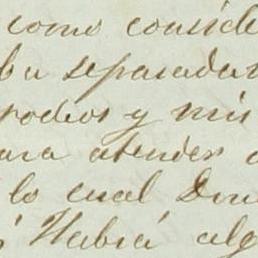 como conside
separada
rodeos y mis
para atender a
lo cual Don
Habrá alg